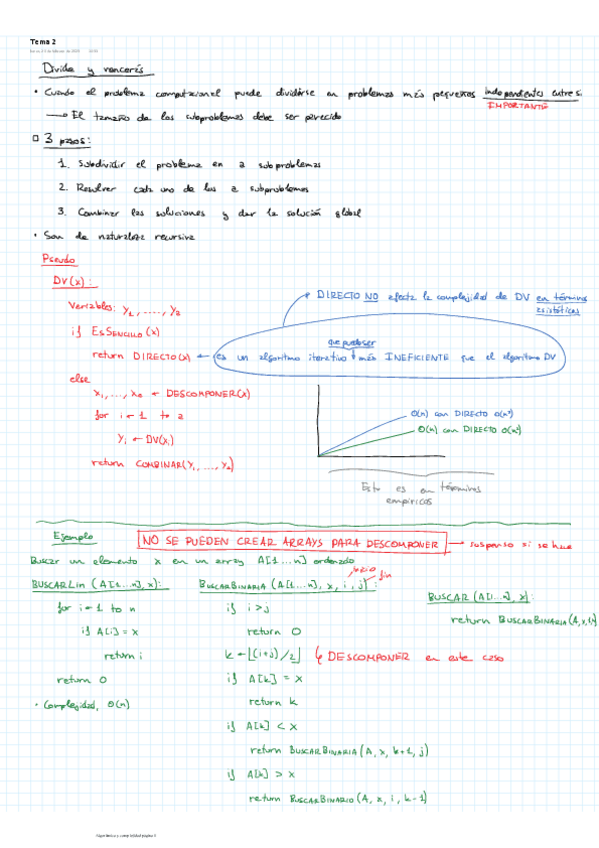 Tema 2
Divide y vencerás
• Cuando el problema computacional puede dividirse en problemas más pequeños independientes entre si
IMPORTANTE
→ El tamaño de los subproblemas debe ser parecido
3 pasos:
1. Subdividir el problema en a subproblemas
2. Resolver cada uno de los a subproblemas
3. Combinar las soluciones y dar la solución global
• Son de naturaleza recursiva
Pseudo
DV(x):
Variables: y₁, ...., y₂
if EsSencillo(x)
return DIRECTO(x) ← es un algoritmo iterativo que puede ser más INEFICIENTE que el algoritmo DV
DIRECTO NO afecta la complejidad de DV en términos
asistóticos
else
x₁, ..., xₐ ← DESCOMPONER(x)
for i ← 1 to a
yᵢ ← DV(xᵢ)
return COMBINAR(y₁, ..., yₐ)
O(n) con DIRECTO O(n²)
O(n) con DIRECTO O(n²)
Esto es en términos
empíricos
Ejemplo
NO SE PUEDEN CREAR ARRAYS PARA DESCOMPONER → suspenso si se hace
Buscar un elemento x en un array A[1...n] ordenado
BUSCARLIN (A[1...n], x):
for i ← 1 to n
if A[i] = x
return i
return 0
• Complejidad, O(n)
BUSCARBINARIA (A[1...n], x, i, j):
inicio
fin
if i > j
return 0
k ← ⌊(i+j)/2⌋ ↳ DESCOMPONER en este caso
if A[k] = x
return k
if A[k] < x
return BUSCARBINARIA (A, x, k+1, j)
if A[k] > x
return BUSCARBINARIO (A, x, i, k-1)
BUSCAR (A[1...n], x):
return BUSCARBINARIA (A, x, 1,